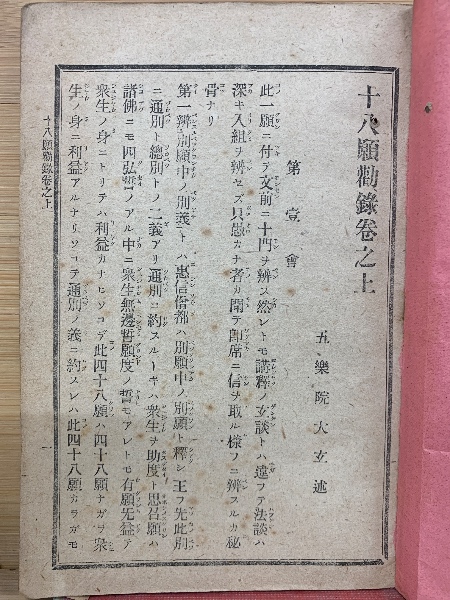 十八願勸錄卷之上
五樂院大立述
第壹會
此一願ニ付テ文前ニ十門ヲ辨ス然レトモ講釋ノ玄談トハ違フテ法談ハ
深キ入組ヲ辨セズ只愚カナ者カ聞テ卽席ニ信ヲ取ル樣フニ辨スルカ秘
骨ナリ
第一辨別願中ノ別義トハ惠信僧都ハ別願中ノ別願ト釋シ王フ先此別
ニ通別ト總別トノ二義アリ通別ニ約スルトキハ衆生ヲ助度ト思召願ハ
諸佛ニモ四弘誓ノアル中ニ衆生無邊誓願度ノ誓モアレトモ有願无益テ
衆生ノ身ニトリテハ利益カナヒソコデ此四十八願ハ四十八願ナガラ衆
生ノ身ニ利益アルナリソコテ通別ノ義ニ約スレハ此四十八願カラガモ
十八願勸錄卷之上